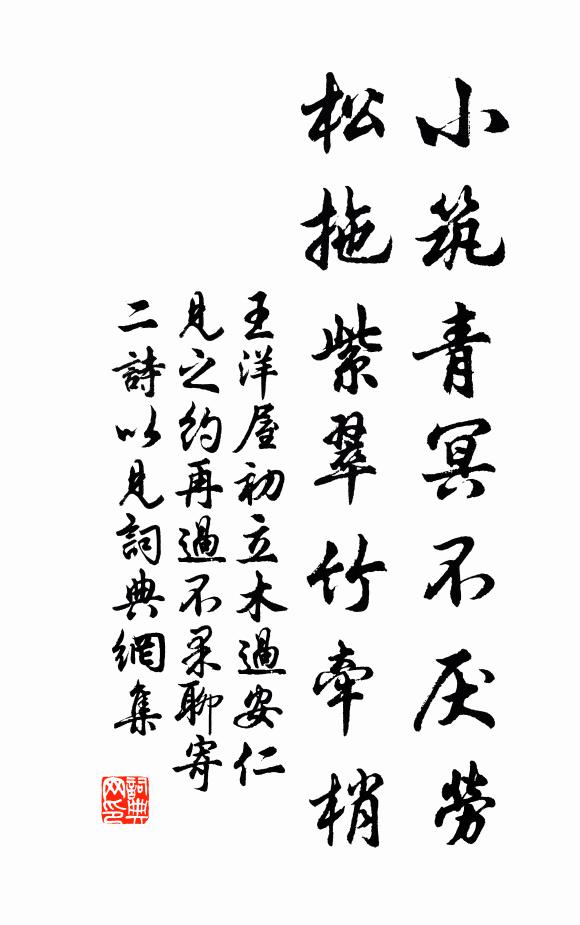 小筑青冥不厌勞
松拖紫翠竹牽梢
王洋屋初立木過安仁
見之約再過不果聊寄
二詩以見詞典網集
詞典网印